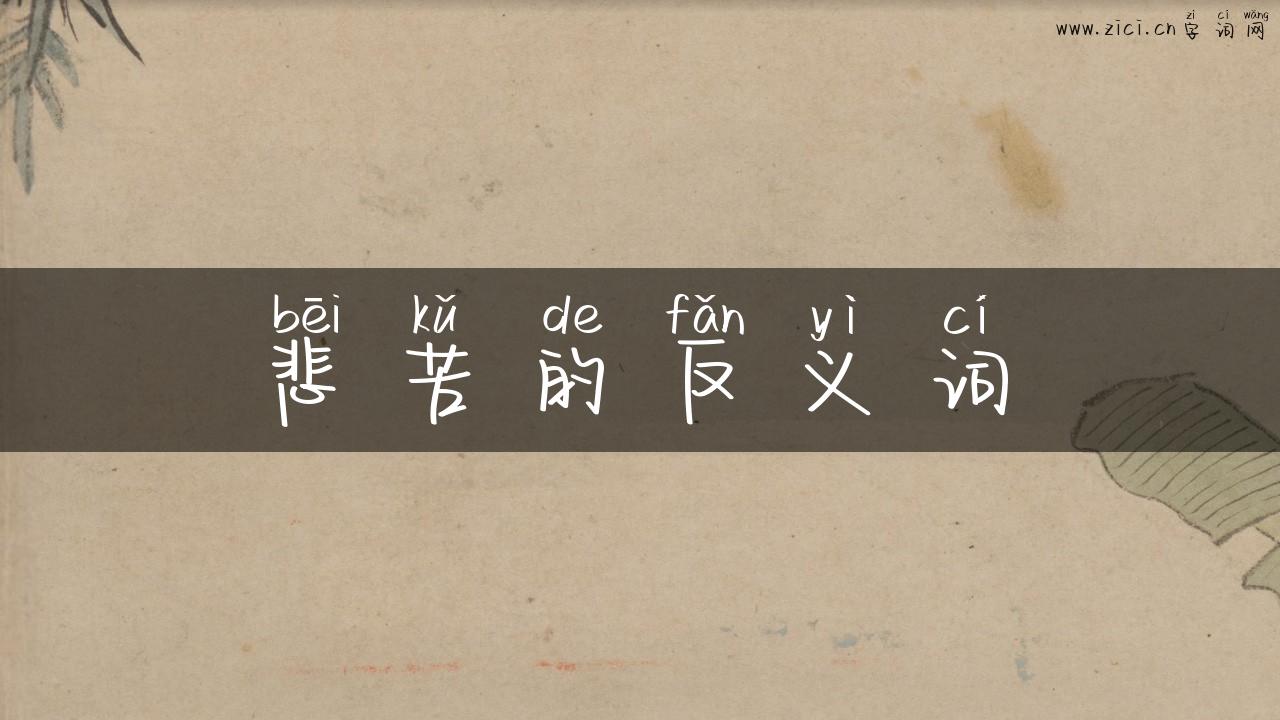 zì cí wǎng
www.zici.cn 字词网
bēi kǔ de fǎn yì cí
悲苦的反义词